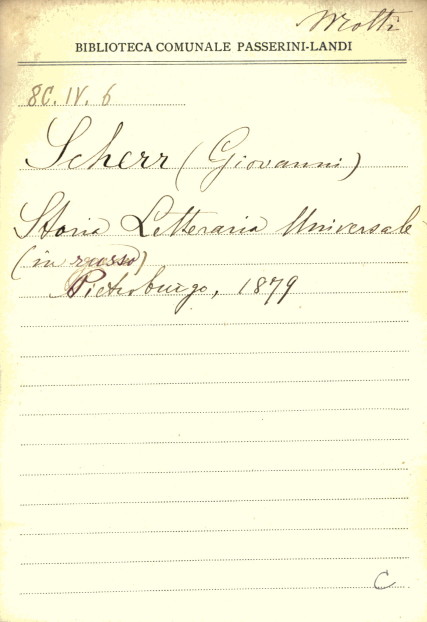 Motti
BIBLIOTECA COMUNALE PASSERINI-LANDI
8C. IV. 6
Scherr (Giovanni)
Storia Letteraria Universale
(in russo)
Pietroburgo, 1879
C